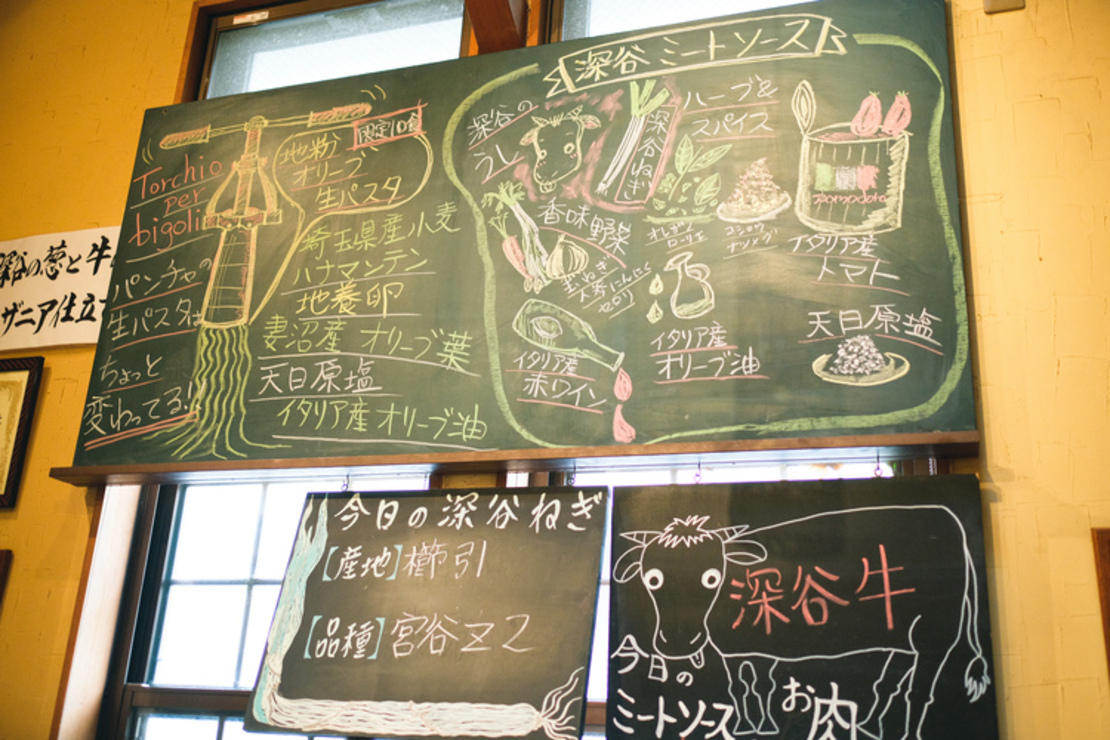 深谷の葱と牛
ザニア仕立
Torchio
per
bigoli
パンチャの
生パスタは
ちょっと
変わってる!!
限定10食
地粉
オリーブ
生パスタ
埼玉県産小麦
ハナマンテン
地養卵
妻沼産 オリーブ葉
天日原塩
イタリア産 オリーブ油
深谷ミートソース
深谷の
うし
深谷ねぎ
ハーブ&
スパイス
香味野菜
玉ねぎ
人参にんにく
セロリ
ローリエ
コショウ
ナツメグ
pomodoro
イタリア産
トマト
イタリア産
赤ワイン
イタリア産
オリーブ油
天日原塩
今日の深谷ねぎ
【産地】櫛引
【品種】宮谷
深谷牛
今日の
ミートソース
お肉